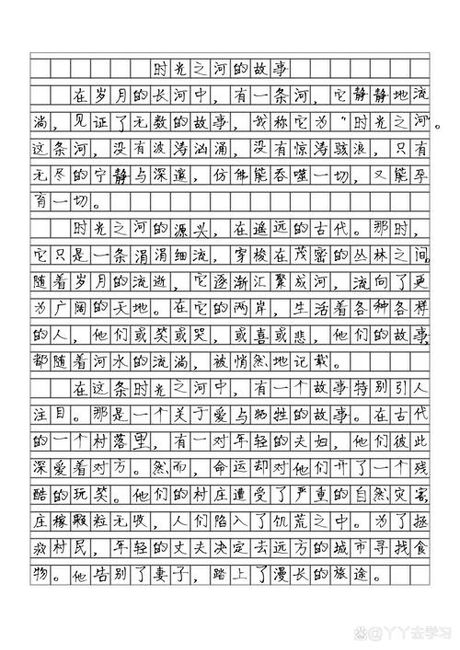 时光之河的故事
在岁月的长河中，有一条河，它静静地流
淌，见证了无数的故事，我称它为“时光之河”。
这条河，没有波涛汹涌，没有惊涛骇浪，只有
无尽的宁静与深邃，仿佛能吞噬一切，又能孕
育一切。
时光之河的源头，在遥远的古代。那时，
它只是一条涓涓细流，穿梭在茂密的丛林之间。
随着岁月的流逝，它逐渐汇聚成河，流向了更
为广阔的天地。在它的两岸，生活着各种各样
的人，他们或笑或哭，或喜或悲，他们的故事，
都随着河水的流淌，被悄然地记载。
在这条时光之河中，有一个故事特别引人
注目。那是一个关于爱与牺牲的故事。在古代
的一个村落里，有一对年轻的夫妇，他们彼此
深爱着对方。然而，命运却对他们开了一个残
酷的玩笑。他们的村庄遭受了严重的自然灾害，
庄稼颗粒无收，人们陷入了饥荒之中。为了拯
救村民，年轻的丈夫决定去远方的城市寻找食
物。他告别了妻子，踏上了漫长的旅途。
@丫丫去学习